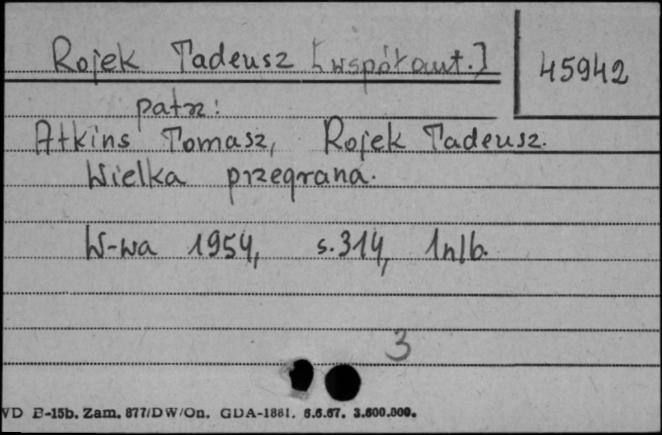 Rojek Tadeusz [współaut.]
45942
patrz:
Atkins Tomasz, Rojek Tadeusz.
Wielka przegrana.
W-wa 1954, s.314, 1nlb.
3
VD B-15b. Zam. 877/DW/On. GDA-1881. 6.6.67. 3.600.000.